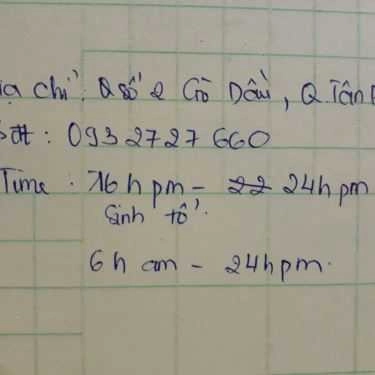 ịa chỉ: Q số 2 Gò Dầu, Q. Tân
đt: 0932727660
Time: 16h pm - 22 24h pm
Sinh tố.
6h am - 24h pm.